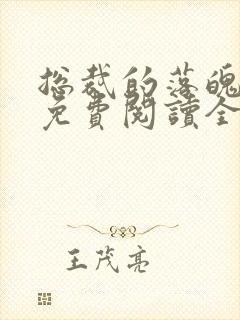 总裁的落魄
免費閱讀全
王茂亮